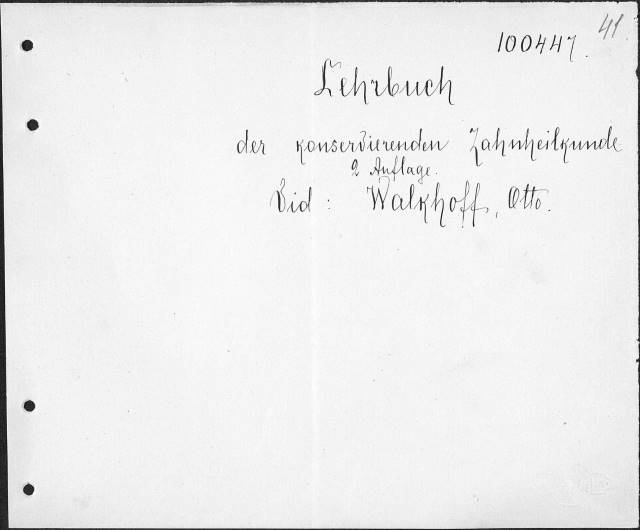 41
100447.
Lehrbuch
der konservierenden Zahnheilkunde
2 Auflage.
Vid: Walkhoff, Otto.